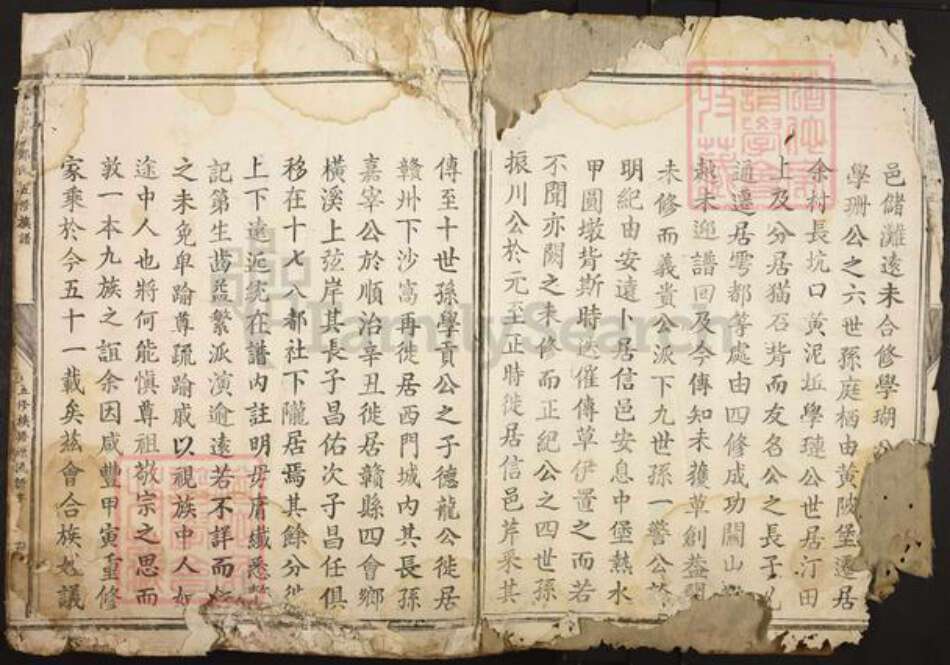 邑儲灘遠未合修學瑚
學珊公之六世孫庭栖由黄陂堡遷居
余村長坑口黄泥坵學璉公世居汀田
上及分居猫石背而友名公之長子
通遷居雩都等處由四修成功關山
越未迎譜回及今傳知未獲草創
未修而義貴公派下九世孫一警公
明紀由安遠卜居信邑安息中堡熱水
甲圓墩背斯時迭催傳草伊置之而若
不聞亦闕之未修而正紀公之四世孫
振川公於元至正時徙居信邑芹菜其
傳至十世孫學貢公之子德龍公徙居
贛州下沙窩再徙居西門城内其長孫
嘉宰公於順治辛丑徙居贛縣四會鄉
横溪上弦岸其長子昌佑次子昌任俱
移在十七八都社下隴居焉其餘分徙
上下遠近宪在譜内註明毋庸纎悉
記第生齒益繁派演逾遠若不詳而
之未免卑踰尊疏踰戚以視族中人如
途中人也將何能慎尊祖敬宗之思而
敦一本九族之誼余因咸豐甲寅重修
家乘於今五十一載矣兹會合族尨議
氏五修族譜
五修族譜源流
FamilySearch